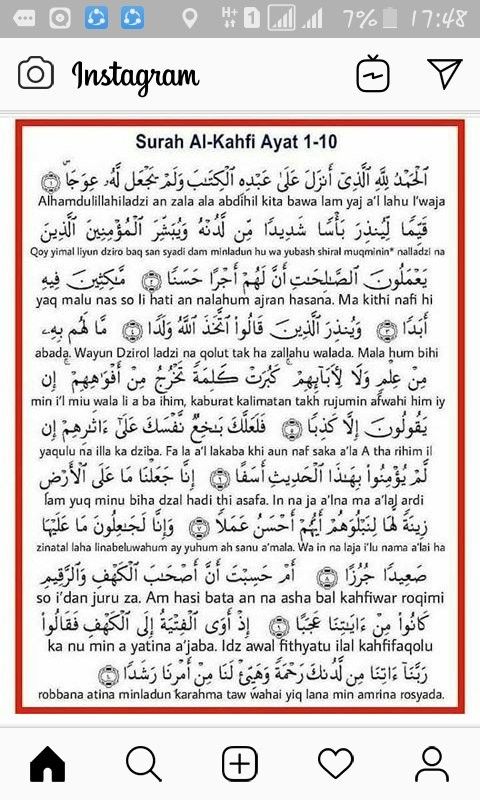 H+ 1 7% 17:48
Instagram
Surah Al-Kahfi Ayat 1-10
ٱلْحَمْدُ لِلَّهِ ٱلَّذِىٓ أَنزَلَ عَلَىٰ عَبْدِهِ ٱلْكِتَٰبَ وَلَمْ يَجْعَل لَّهُۥ عِوَجَاۜ ١
Alhamdulillahiladzi an zala ala abdihil kita bawa lam yaj a'l lahu I'waja
قَيِّمًا لِّيُنذِرَ بَأْسًا شَدِيدًا مِّن لَّدُنْهُ وَيُبَشِّرَ ٱلْمُؤْمِنِينَ ٱلَّذِينَ
Qoy yimal liyun dziro baq san syadi dam minladun hu wa yubash shiral muqminin* nalladzi na
يَعْمَلُونَ ٱلصَّٰلِحَٰتِ أَنَّ لَهُمْ أَجْرًا حَسَنًا ٢ مَّٰكِثِينَ فِيهِ
yaq malu nas so li hati an nalahum ajran hasana. Ma kithi nafi hi
أَبَدًا ٣ وَيُنذِرَ ٱلَّذِينَ قَالُوا۟ ٱتَّخَذَ ٱللَّهُ وَلَدًا ٤ مَّا لَهُم بِهِۦ
abada. Wayun Dzirol ladzi na qolut tak ha zallahu walada. Mala hum bihi
مِنْ عِلْمٍ وَلَا لِءَابَآئِهِمْ ۚ كَبُرَتْ كَلِمَةً تَخْرُجُ مِنْ أَفْوَٰهِهِمْ ۚ إِن
min i'l miu wala li a ba ihim, kaburat kalimatan takh rujumin afwahi him iy
يَقُولُونَ إِلَّا كَذِبًا ٥ فَلَعَلَّكَ بَٰخِعٌ نَّفْسَكَ عَلَىٰٓ ءَاثَٰرِهِمْ إِن
yaqulu na illa ka dziba. Fa la a'l lakaba khi aun naf saka a'la A tha rihim il
لَّمْ يُؤْمِنُوا۟ بِهَٰذَا ٱلْحَدِيثِ أَسَفًا ٦ إِنَّا جَعَلْنَا مَا عَلَى ٱلْأَرْضِ
lam yuq minu biha dzal hadi thi asafa. In na ja a'lna ma a'lal ardi
زِينَةً لَّهَا لِنَبْلُوَهُمْ أَيُّهُمْ أَحْسَنُ عَمَلًا ٧ وَإِنَّا لَجَٰعِلُونَ مَا عَلَيْهَا
zinatal laha linabeluwahum ay yuhum ah sanu a'mala. Wa in na laja i'lu nama a'lai ha
صَعِيدًا جُرُزًا ٨ أَمْ حَسِبْتَ أَنَّ أَصْحَٰبَ ٱلْكَهْفِ وَٱلرَّقِيمِ
so i'dan juru za. Am hasi bata an na asha bal kahfiwar roqimi
كَانُوا۟ مِنْ ءَايَٰتِنَا عَجَبًا ٩ إِذْ أَوَى ٱلْفِتْيَةُ إِلَى ٱلْكَهْفِ فَقَالُوا۟
ka nu min a yatina a'jaba. Idz awal fithyatu ilal kahfifaqolu
رَبَّنَآ ءَاتِنَا مِن لَّدُنكَ رَحْمَةً وَهَيِّئْ لَنَا مِنْ أَمْرِنَا رَشَدًا ١٠
robbana atina minladun karahma taw wahai yiq lana min amrina rosyada.